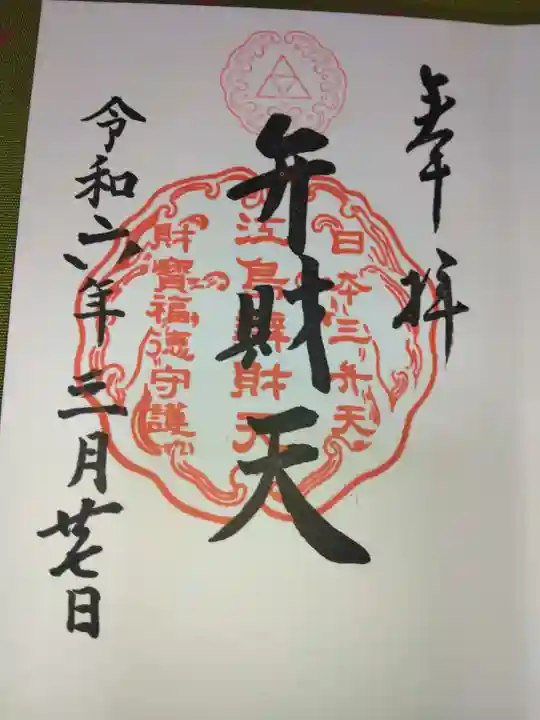 奉拝
日本三弁天
江島辨財天
弁財天
財寶福徳守護
令和六年三月廿七日